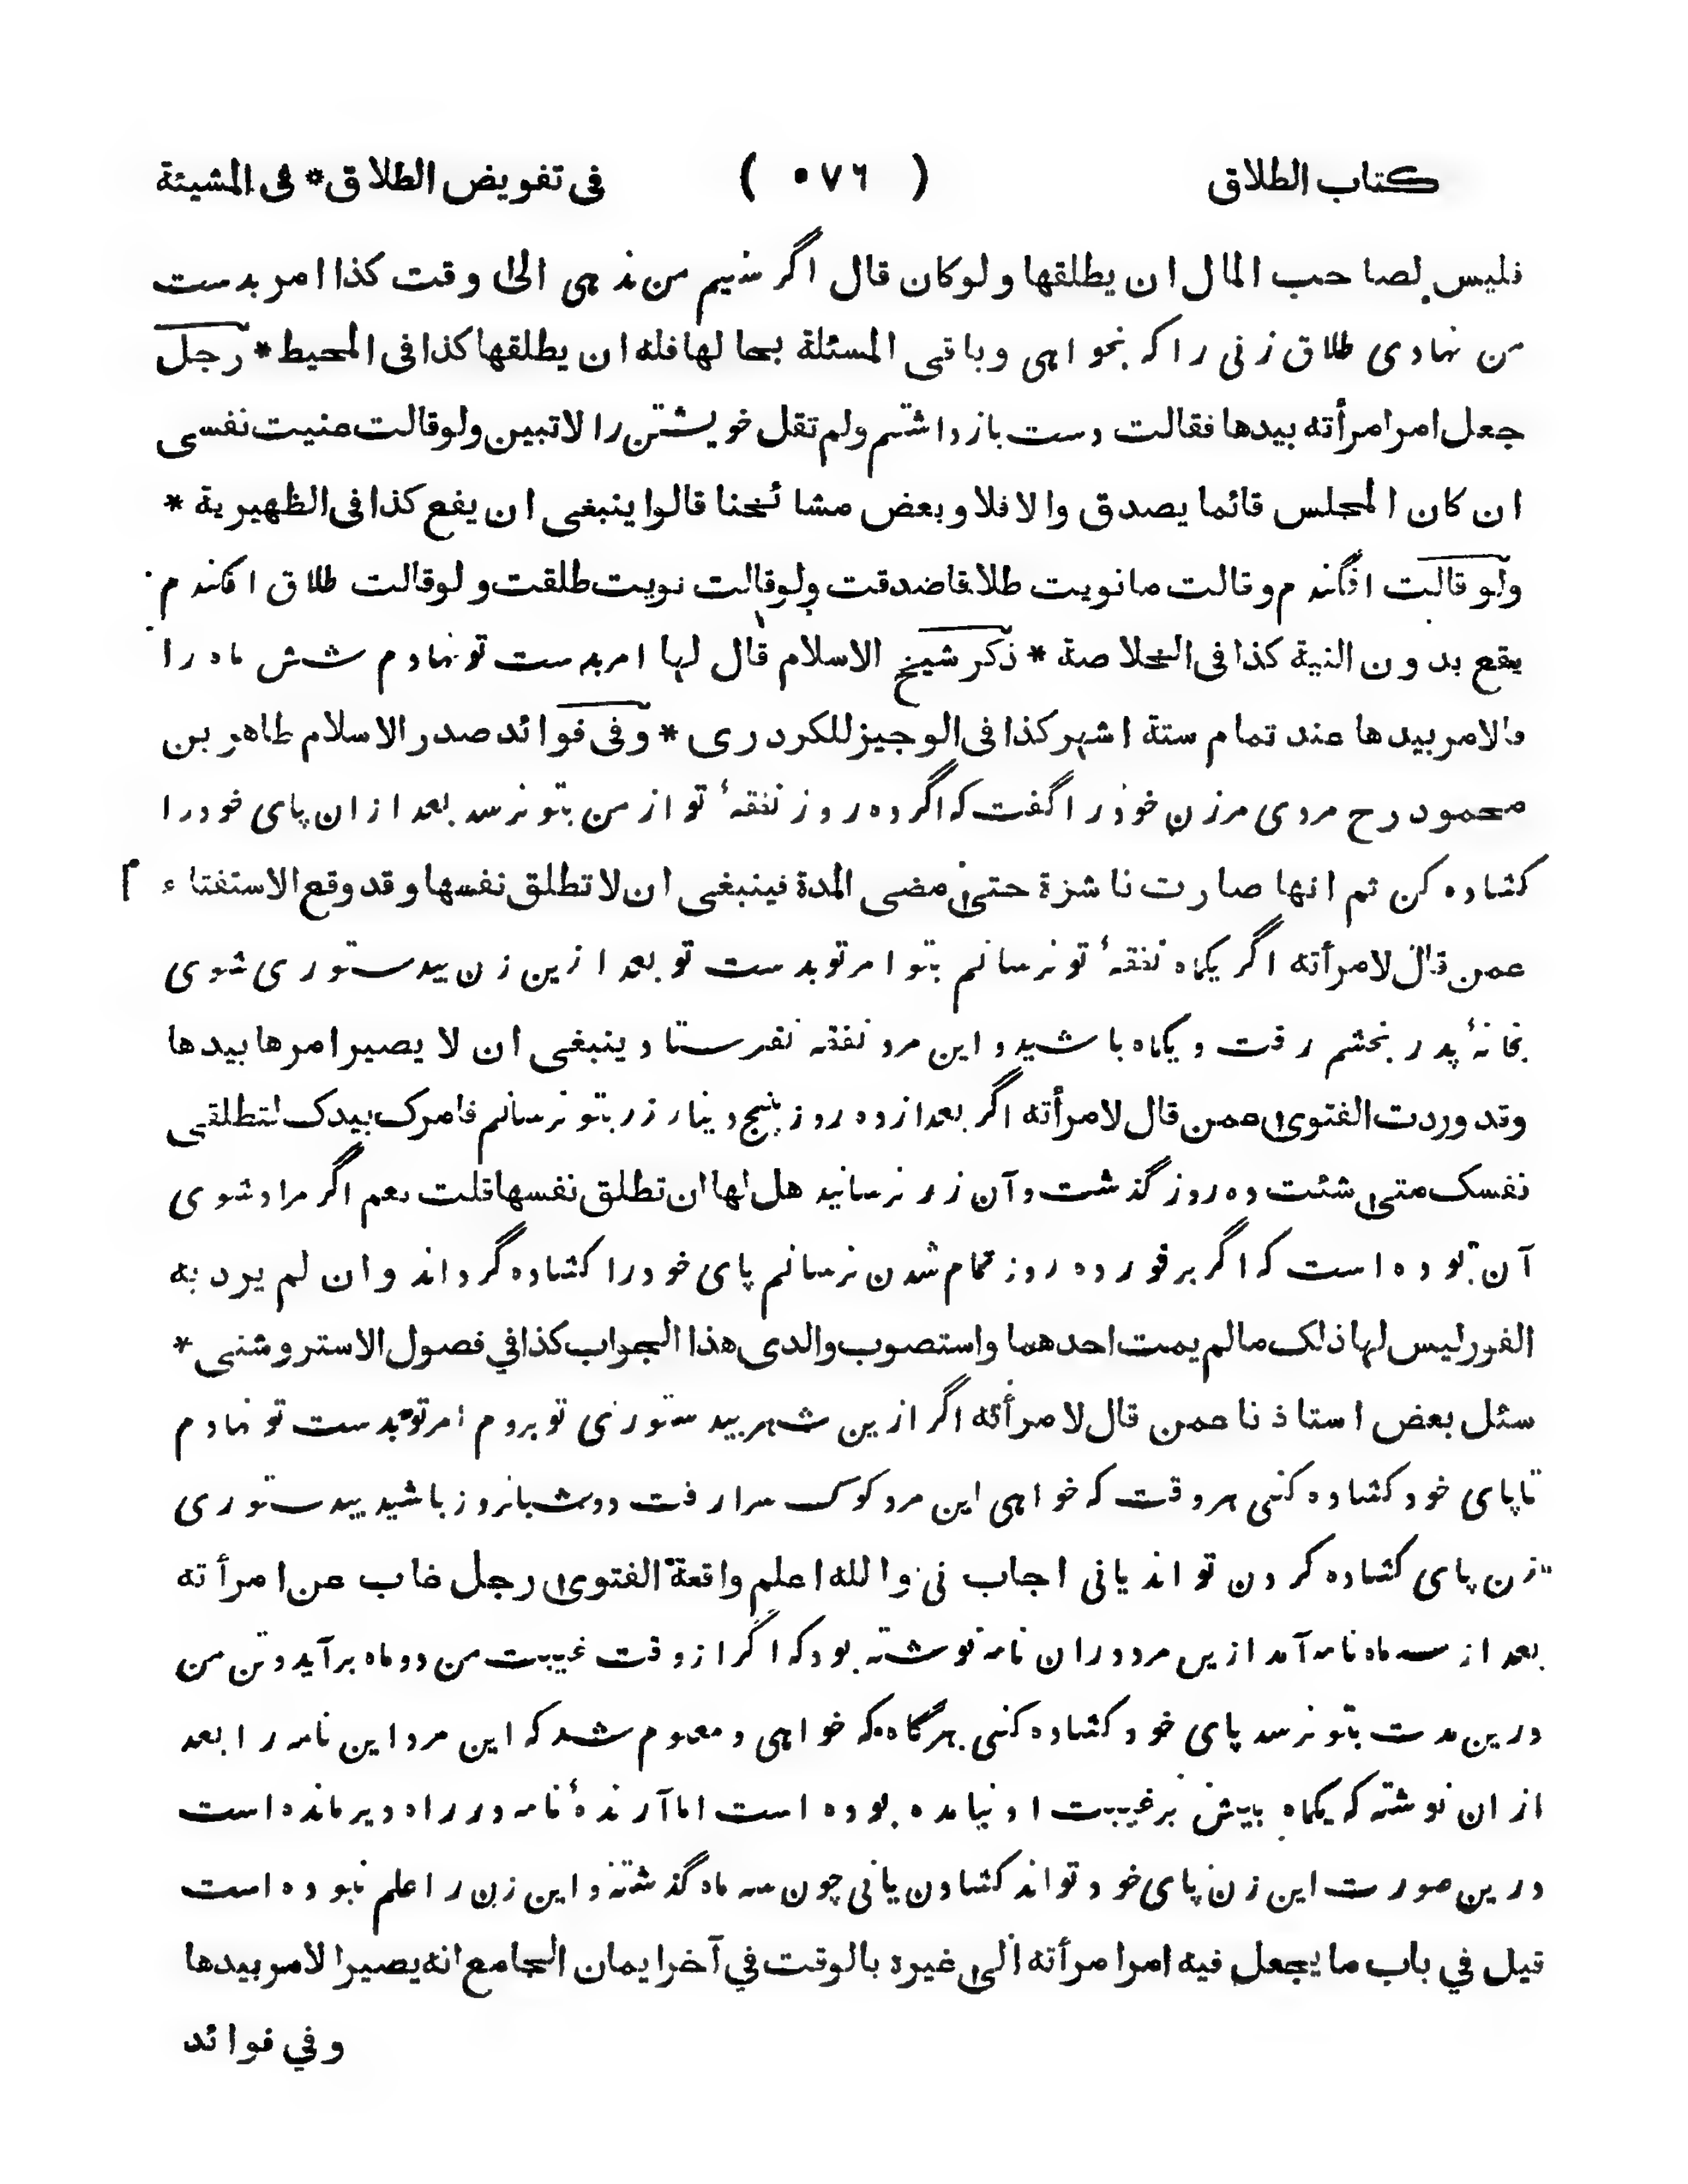 كتاب الطلاق ( ٥٧٦ ) فى تفويض الطلاق * فى المشيئة
فليس لصاحب المال ان يطلقها ولو كان قال اگر سيم من ندهى الى وقت كذا امر بدست
من نهادى طلاق زنى را كه بخواهى وباقى المسئلة بحالها فله ان يطلقها كذا فى المحيط * رجل
جعل امر امرأته بيدها فقالت دست باز داشتم ولم تقل خويشتن را لا تبين ولو قالت عنيت نفسى
ان كان المجلس قائما يصدق والا فلا وبعض مشائخنا قالوا ينبغى ان يقع كذا فى الظهيرية *
ولو قالت افگندم وقالت ما نويت طلاقا صدقت ولو قالت نويت طلقت ولو قالت طلاق افكندم
يقع بدون النية كذا فى الخلاصة * ذكر شيخ الاسلام قال لها امر بدست تو نهادم شش ماه را
فالامر بيدها عند تمام ستة اشهر كذا فى الوجيز للكردرى * وفى فوائد صدر الاسلام طاهر بن
محمود رح مردى مرزن خود را گفت كه اگر ده روز نفقهٔ تو از من بتو نرسد بعد ازان پاى خود را
كشاده كن ثم انها صارت ناشزة حتى مضى المدة فينبغى ان لا تطلق نفسها وقد وقع الاستفتاء
عمن قال لامرأته اگر يكماه نفقهٔ تو نرسانم بتو امر تو بدست تو بعد ازين زن بيدستورى شوى
بخانهٔ پدر بخشم رفت ويكماه باشيد واين مرد نفقه نفرستاد ينبغى ان لا يصير امرها بيدها
وقد وردت الفتوى عمن قال لامرأته اگر بعد از ده روز پنج دينار زر بتو نرسانم فامرك بيدك لتطلقى
نفسك متى شئت ده روز گذشت وآن زر نرسانيد هل لها ان تطلق نفسها قلت نعم اگر مراد شوى
آن بوده است كه اگر بر فور ده روز تمام شدن نرسانم پاى خود را كشاده گرداند وان لم يرد به
الفور ليس لها ذلك ما لم يمت احدهما واستصوب والدى هذا الجواب كذا في فصول الاستروشنى *
سئل بعض استاذنا عمن قال لامرأته اگر ازين شهر بيدستورى تو بروم امر تو بدست تو نهادم
تا پاى خود كشاده كنى هر وقت كه خواهى اين مرد كوك سرا رفت دو شبانروز باشيد بيدستورى
زن پاى كشاده كردن تواند يا نى اجاب نى والله اعلم واقعة الفتوى رجل غاب عن امرأته
بعد از سه ماه نامه آمد ازيں مرد دران نامه نوشته بود كه اگر از وقت غيبت من دو ماه برآيد وتن من
درين مدت بتو نرسد پاى خود كشاده كنى هرگاه كه خواهى ومعلوم شد كه اين مرد اين نامه را بعد
ازان نوشته كه يكماه بيش بر غيبت او نيامده بوده است اما آرندهٔ نامه در راه دير مانده است
درين صورت اين زن پاى خود تواند كشادن يا نى چون سه ماه گذشته واين زن را علم نبوده است
قيل في باب ما يجعل فيه امر امرأته الى غيره بالوقت في آخر ايمان الجامع انه يصير الامر بيدها
وفي فوائد